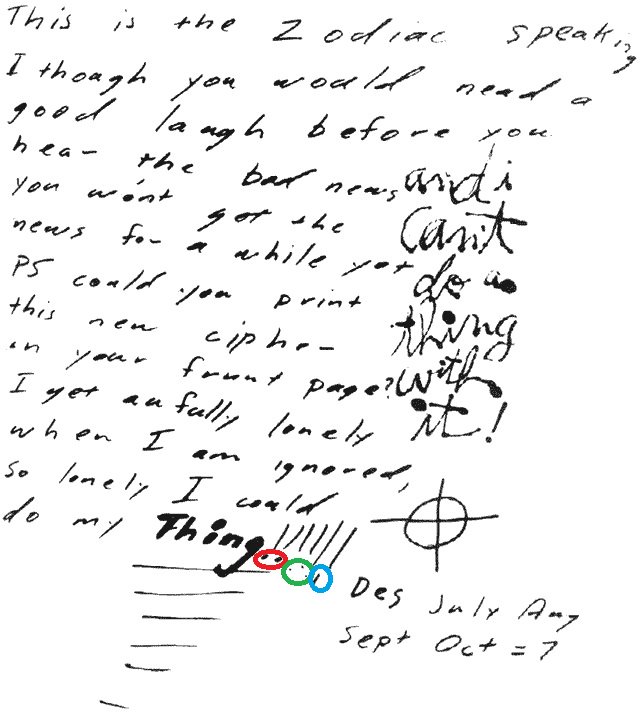 This is the Zodiac speaking
I though you would nead a
good laugh before you
hear the bad news
you won't get the
news for a while yet
PS could you print
this new cipher
in your frunt page?
I get aufully lonely
when I am ignored,
so lonely I could
do my Thing
and i
can't
do a
thing
with
it!
Des July Aug
Sept Oct = 7